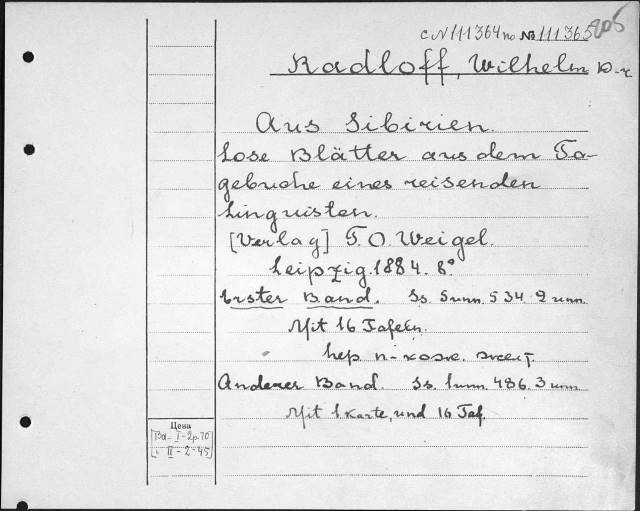 с N 111364 по № 111365
Radloff, Wilhelm D-r
Aus Sibirien.
Lose Blätter aus dem Ta-
gebuche eines reisenden
Linguisten.
[Verlag] T. O. Weigel.
Leipzig. 1884. 8°
Erster Band. Ss. 5 unn. 534. 2 unn.
Mit 16 Tafeln.
пер. п-кож. желт.
Anderer Band. Ss. 1 unn. 486. 3 unn
Mit 1 Karte, und 16 Taf.
Цена
[Bd - I - 2р. 70
II - 2 - 45]